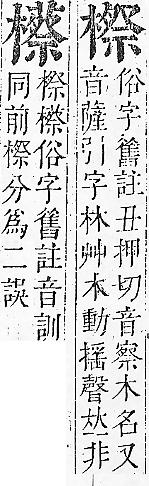 俗字舊註丑押切音察木名又
音薩引字林艸木動搖聲𠀤非
俗字舊註音訓
同前分爲二誤